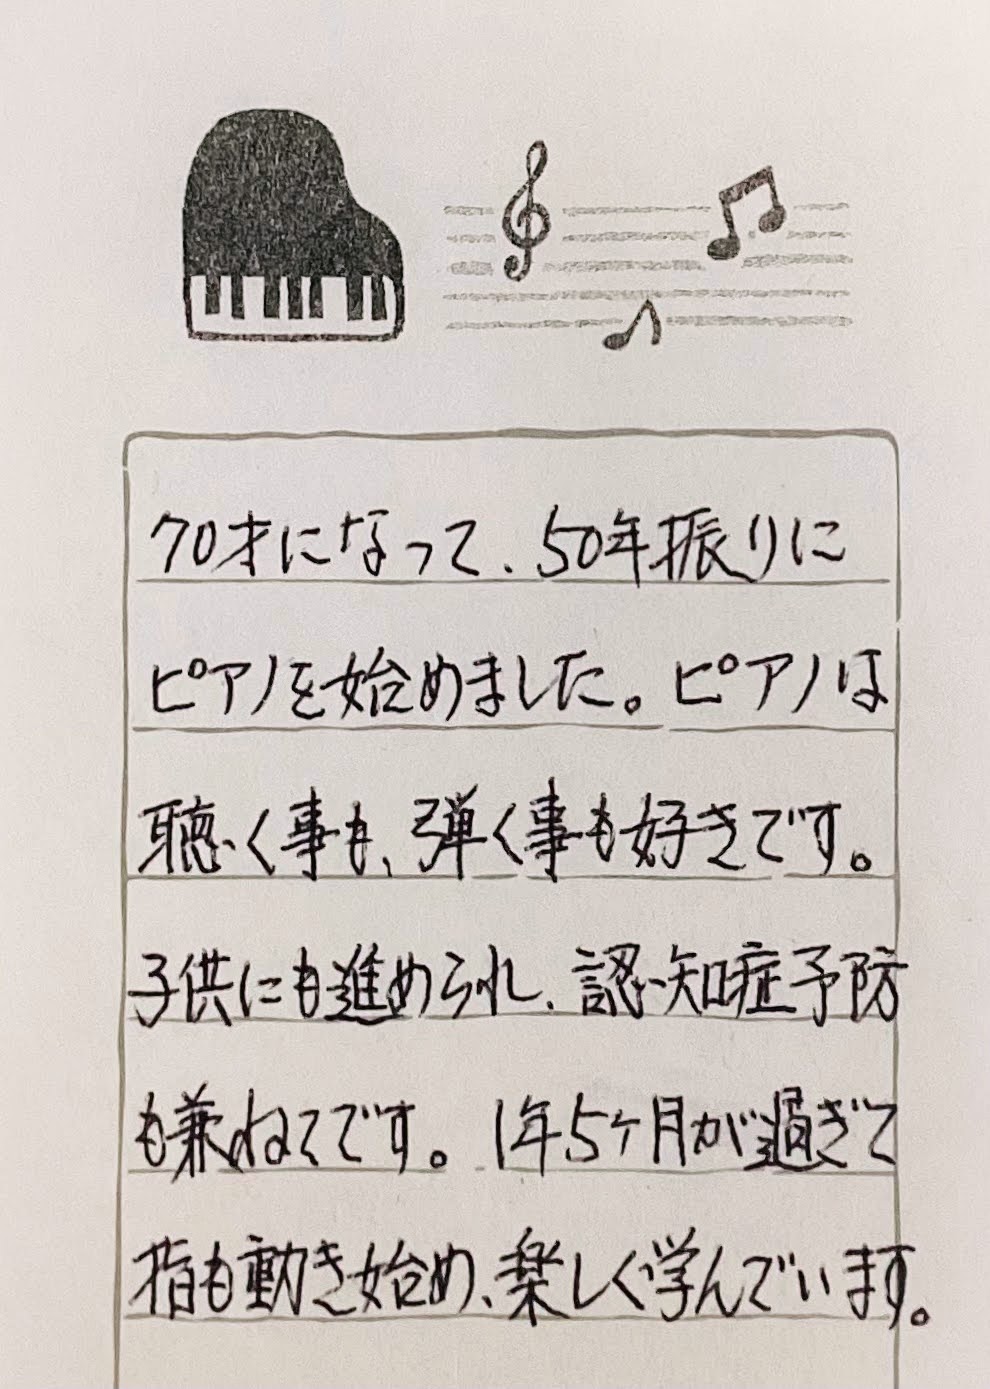 70才になって、50年振りに
ピアノを始めました。ピアノは
聴く事も、弾く事も好きです。
子供にも進められ、認知症予防
も兼ねてです。1年5ヶ月が過ぎて
指も動き始め、楽しく学んでいます。